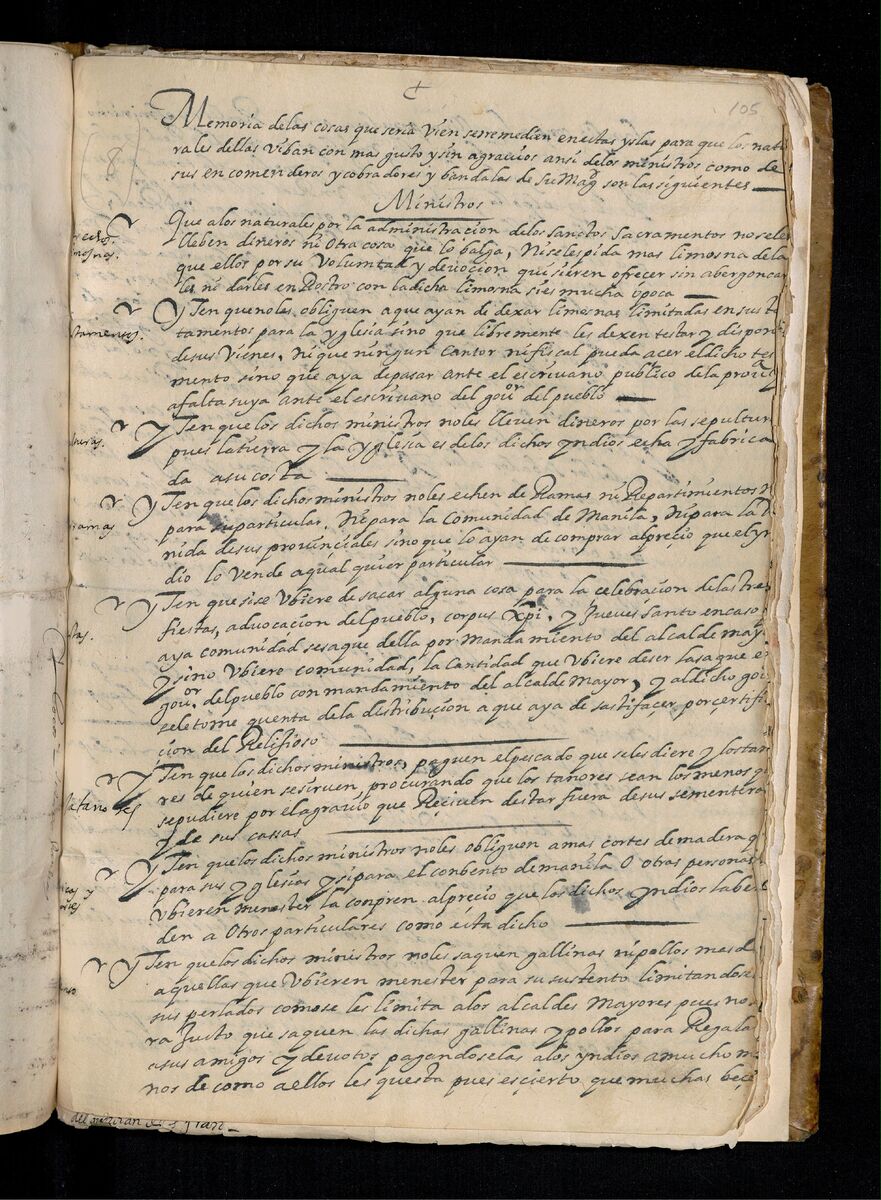 105
Memoria de las cosas que seria vien se rremedien en estas yslas para que los natu
rales dellas viban con mas gusto y sin agravios ansi de los ministros como de
sus encomenderos y cobradores y bandalas de su Magd son las siguientes
(8)
Ministros
Que a los naturales por la administracion de los sanctos sacramentos no se le
lleben dineros ni otra cosa que lo balga, Ni se les pida mas limosna de la
que ellos por su voluntad y devocion quisieren ofrecer sin abergonçar
les ni darles en Rostro con la dicha limosna si es mucha o poca
mosnas.
Yten que no les obliguen a que ayan de dexar limosnas limitadas en sus te
tamentos para la yglesia sino que libremente les dexen testar y dispon
de sus vienes, ni que ningun cantor ni fiscal pueda acer el dicho tes
mento sino que aya de pasar ante el escrivano publico de la prova
a falta suya ante el escrivano del govor del pueblo
stamentos.
Yten que los dichos ministros no les lleven dineros por las sepultur
pues la tierra y la yglesia es de los dichos yndios echa y fabrica
da a su costa
lturas.
Yten que los dichos ministros no les echen de Ramas ni Repartimientos N
para su particular. Ni para la comunidad de Manila, Ni para la
nida de sus provinciales sino que lo ayan de comprar al preçio que el yn
dio lo vende a qualquier particular
ramas
Yten que si se ubiere de sacar alguna cosa para la celebracion de las tres
fiestas, advocacion del pueblo, corpus Xpi. y Jueves Santo en caso
aya comunidad se saque della por mandamiento del alcalde may
y si no ubiere comunidad, la cantidad que ubiere de ser la saque e
govor del pueblo con mandamiento del alcalde mayor, y al dicho go
se le tome quenta de la distribuçion a que aya de sastifaçer por çertifi
cion del Relijioso
stas.
Yten que los dichos ministros, paguen el pescado que se les diere y los tan
res de quien se sirven, procurando que los tanores sean los menos q
se pudiere por el agravio que Reçiven destar fuera de sus sementera
y de sus cassas
Yten que los dichos ministros no les obliguen a mas cortes de madera q
para sus yglesias y si para el conbento de manila O otras personas
ubieren menester la conpren al precio que los dichos yndios la be
den a otros particulares como esta dicho
Yten que los dichos ministros no les saquen gallinas ni pollos mas d
aquellas que ubieren menester para su sustento limitandose
sus perlados como se les limita a los alcaldes mayores pues no
ra Justo que saquen las dichas gallinas y pollos para Regala
a sus amigos y devotos pagandoselas a los yndios a mucho m
nos de como a ellos les questa pues es çierto que muchas beçe